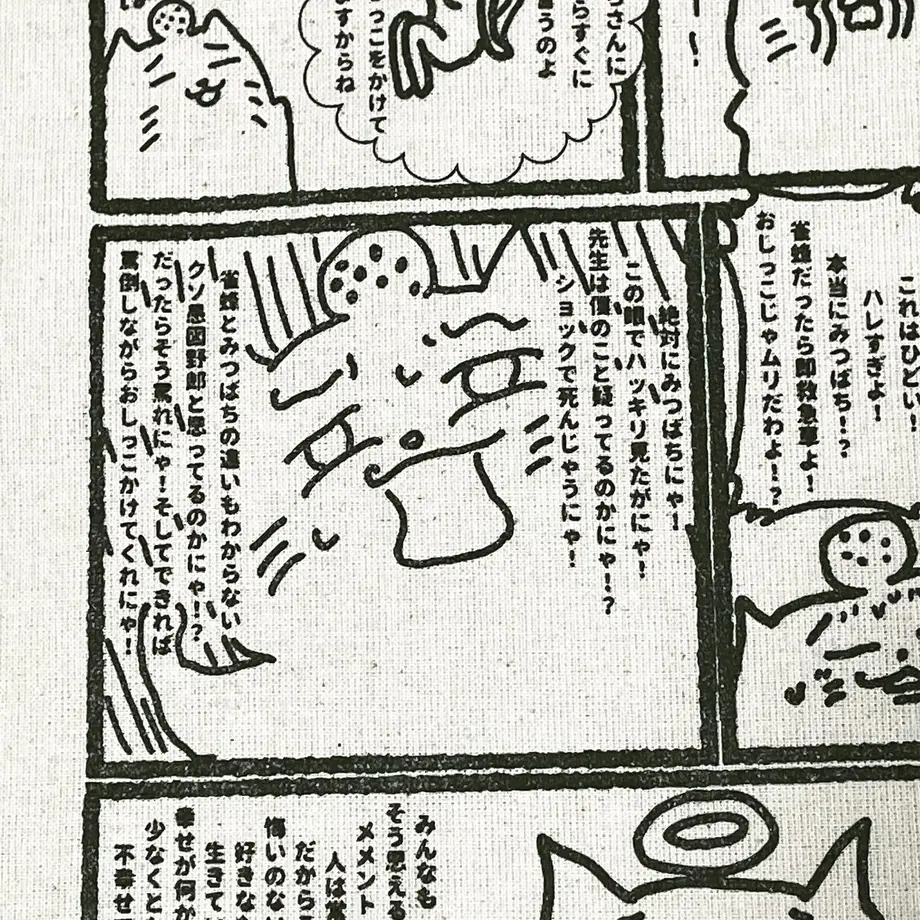 〜！
さんに
らすぐに
うのよ
っこをかけて
ますからね
これはひどい！
ハレすぎよ！
本当にみつばち！？
雀蜂だったら即救急車よ！
おしっこじゃムリだわよ！？
絶対にみつばちにゃ！
この眼でハッキリ見たがにゃ！
先生は僕のこと疑ってるのかにゃ！？
ショックで死んじゃうにゃ！
雀蜂とみつばちの違いもわからない
クソ愚図野郎と思ってるのかにゃ！？
だったらそう罵れにゃ！そしてできれば
罵倒しながらおしっこかけてくれにゃ！
みんなも
そう思える
メメント
人は常
だからこ
悔いのない
好きな
生きてい
幸せが何か
少なくと
不幸せ